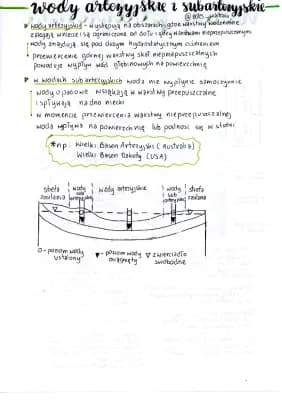 wody artezyjskie i subartezyjskie
wody artezyjskie - występują na obszarach, gdzie warstwy wodonośne
zalegają wniecce i są ograniczone od dołu i góry warstwami nieprzepuszczalnymi
wody znajdują się pod dużym hydrostatycznym ciśnieniem
przewiercenie górnej warstwy skał nieprzepuszczalnych
powoduje wypływ wód głębinowych na powierzchnię
w wodach subartezyjskich woda nie wypłynie samoczynnie
wody opadowe wsiąkają w warstwy przepuszczalne
i spływają na dno niecki
w momencie przewiercenia warstwy nieprzepuszczalnej
woda wpływa na powierzchnię lub podnosi się w studni
*np. Wielki Basen Artezyjski (Australia)
Wielki Basen Dakoty (USA)
strefa zasilania
wody
wody artezyjskie
wody lub
strefa zasilania
O - poziom wody ustalony
▼ - poziom wody osiągnięty
▽ zwierciadło swobodne